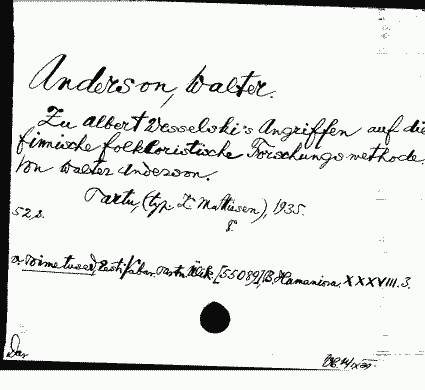 Anderson, Walter.
Zu Albert Wesselski's Angriffen auf die
finnische folkloristische Forschungsmethode.
Von Walter Anderson.
Tartu, (typ. K. Mattiesen), 1935.
8°
52, s.
Eesti Vabar. Tartu Ülik. [55089] B. Humaniora XXXVIII. 3.